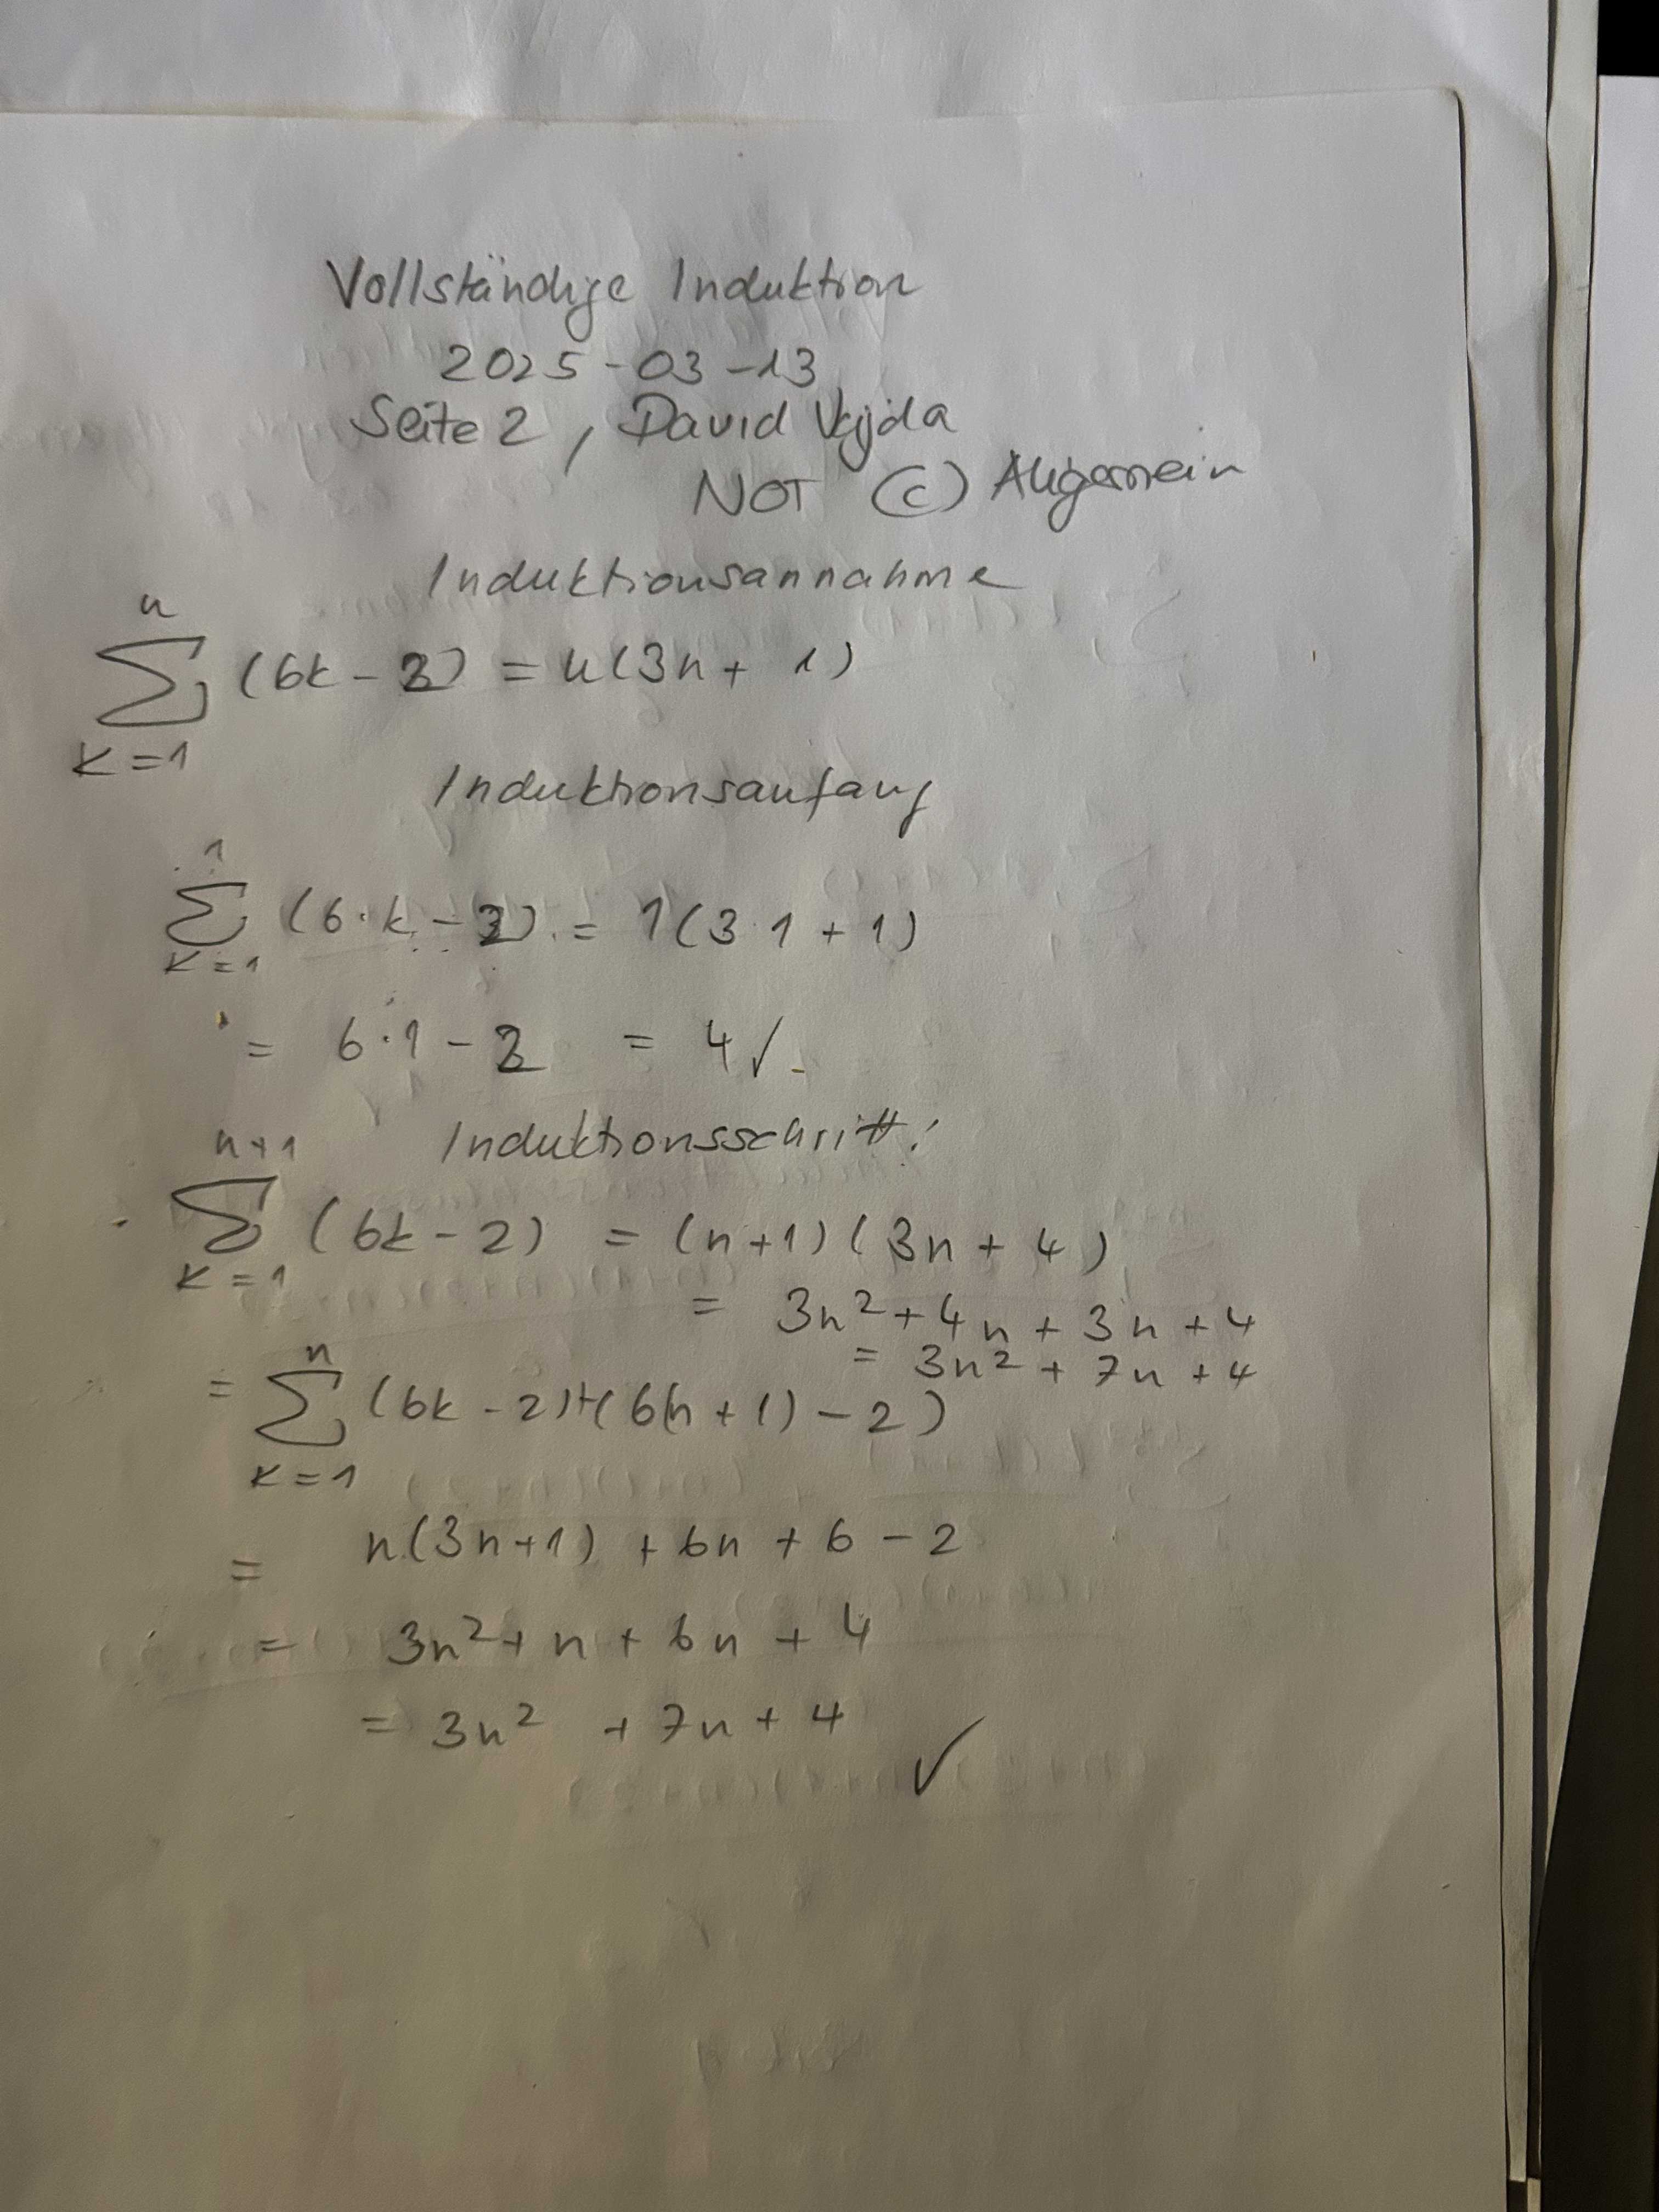 Vollständige Induktion
2025-03-13
Seite 2, David Vajda
NOT (c) Allgemein
Induktionsannahme
n
∑ (6k - 2) = n(3n + 1)
k=1
Induktionsanfang
1
∑ (6·k - 2) = 1(3·1 + 1)
k=1
= 6·1 - 2 = 4 ✓
Induktionsschritt:
n+1
∑ (6k - 2) = (n+1)(3n + 4)
k=1
= 3n² + 4n + 3n + 4
= 3n² + 7n + 4
n
= ∑ (6k - 2)+(6(n+1) - 2)
k=1
= n(3n+1) + 6n + 6 - 2
= 3n² + n + 6n + 4
= 3n² + 7n + 4 ✓